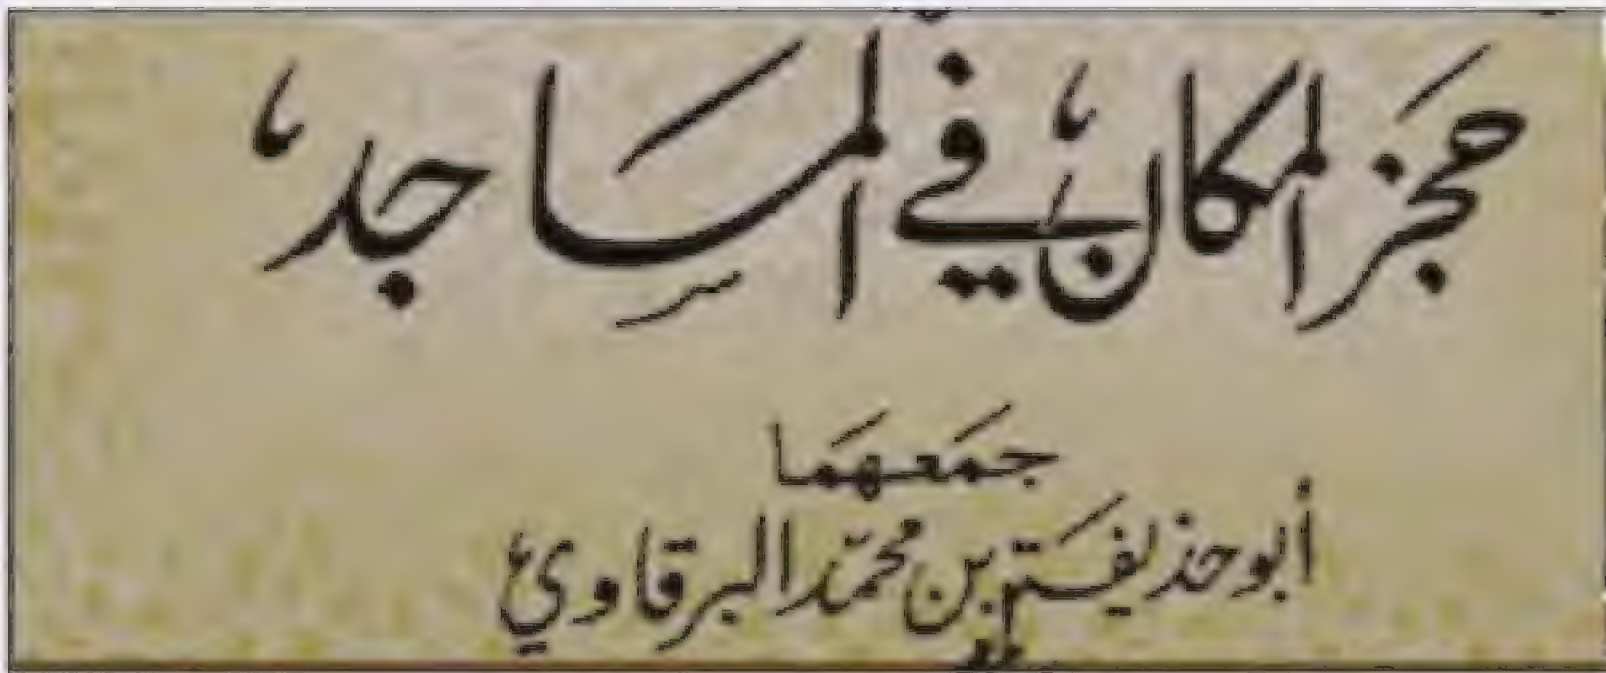 حَجز المكان في المسَاجِد
جمَعهمَا
أبو حذيفَة بن محمّد البرقاوي